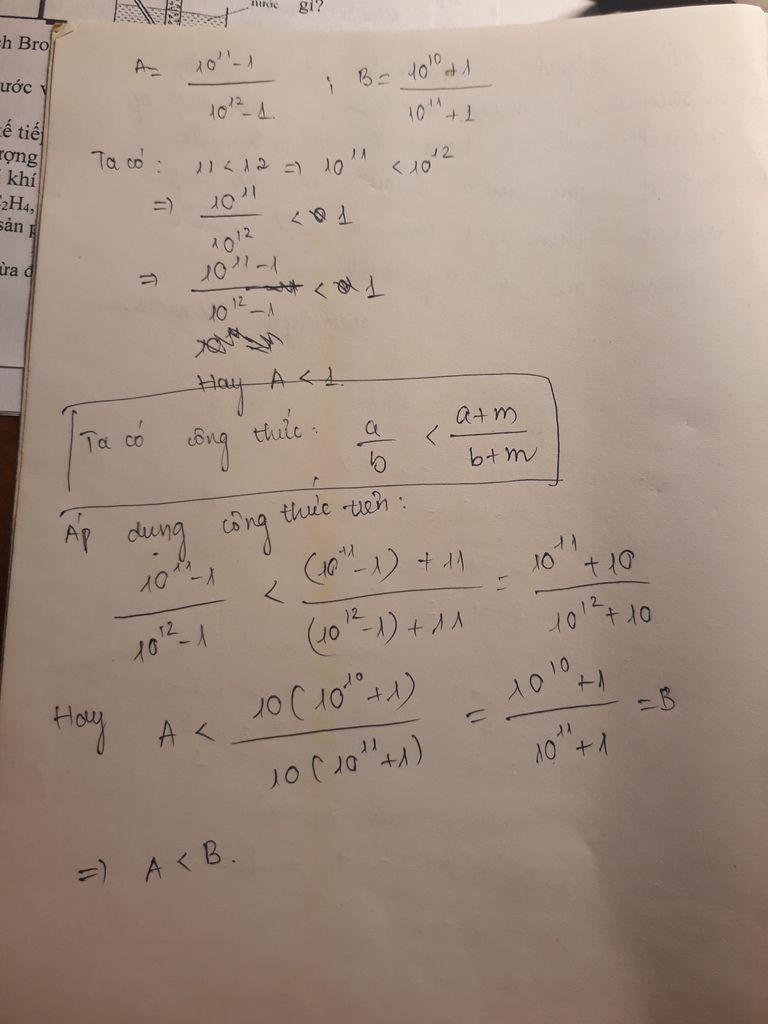 nước gì?
ch Bro
ước v
ế tiế
rợng
khí
C₂H₄,
sản p
ừa đ
A = \frac{10^{11}-1}{10^{12}-1} ; B = \frac{10^{10}+1}{10^{11}+1}
Ta có : 11 < 12 => 10^{11} < 10^{12}
=> \frac{10^{11}}{10^{12}} < 1
=> \frac{10^{11}-1}{10^{12}-1} < 1
Hay A < 1.
Ta có công thức: \frac{a}{b} < \frac{a+m}{b+m}
Áp dụng công thức trên:
\frac{10^{11}-1}{10^{12}-1} < \frac{(10^{11}-1)+11}{(10^{12}-1)+11} = \frac{10^{11}+10}{10^{12}+10}
Hay A < \frac{10(10^{10}+1)}{10(10^{11}+1)} = \frac{10^{10}+1}{10^{11}+1} = B
=> A < B.